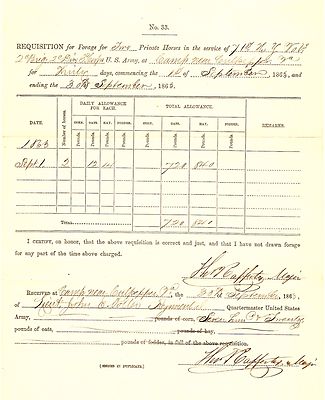 No. 33.
REQUISITION for Forage for Two Private Horses in the service of 71st N. Y. Vols
2d Brig. 2d Div. U. S. Army, at Camp near Culpepper Va
for Thirty days, commencing the 1st of September, 1863, and
ending the 30th September, 1863.
DAILY ALLOWANCE FOR EACH. TOTAL ALLOWANCE.
DATE. Number of horses. CORN. OATS. HAY. FODDER. CORN. OATS. HAY. FODDER. REMARKS.
Pounds. Pounds. Pounds. Pounds. Pounds. Pounds. Pounds. Pounds.
1863
Sept 1 2 12 14 720 840
Total 720 840
I CERTIFY, on honor, that the above requisition is correct and just, and that I have not drawn forage
for any part of the time above charged.
Rafferty Major
RECEIVED at Camp near Culpepper Va, the 30th September, 1863,
of Lieut John Quartermaster United States
Army, pounds of corn, Seven Hund & Twenty
pounds of oats, pounds of hay,
pounds of fodder, in full of the above requisition.
Rafferty Major
[SIGNED IN DUPLICATE.]